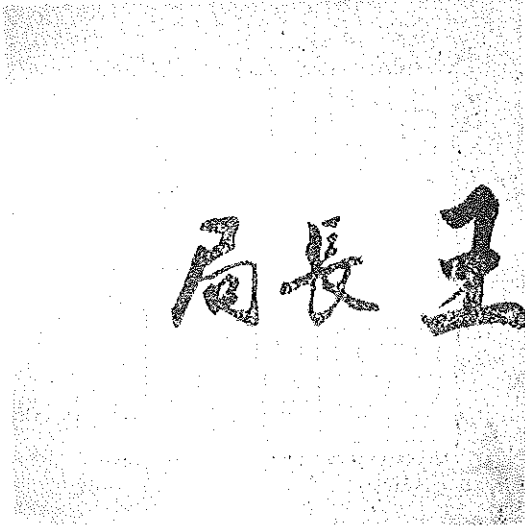 局長王